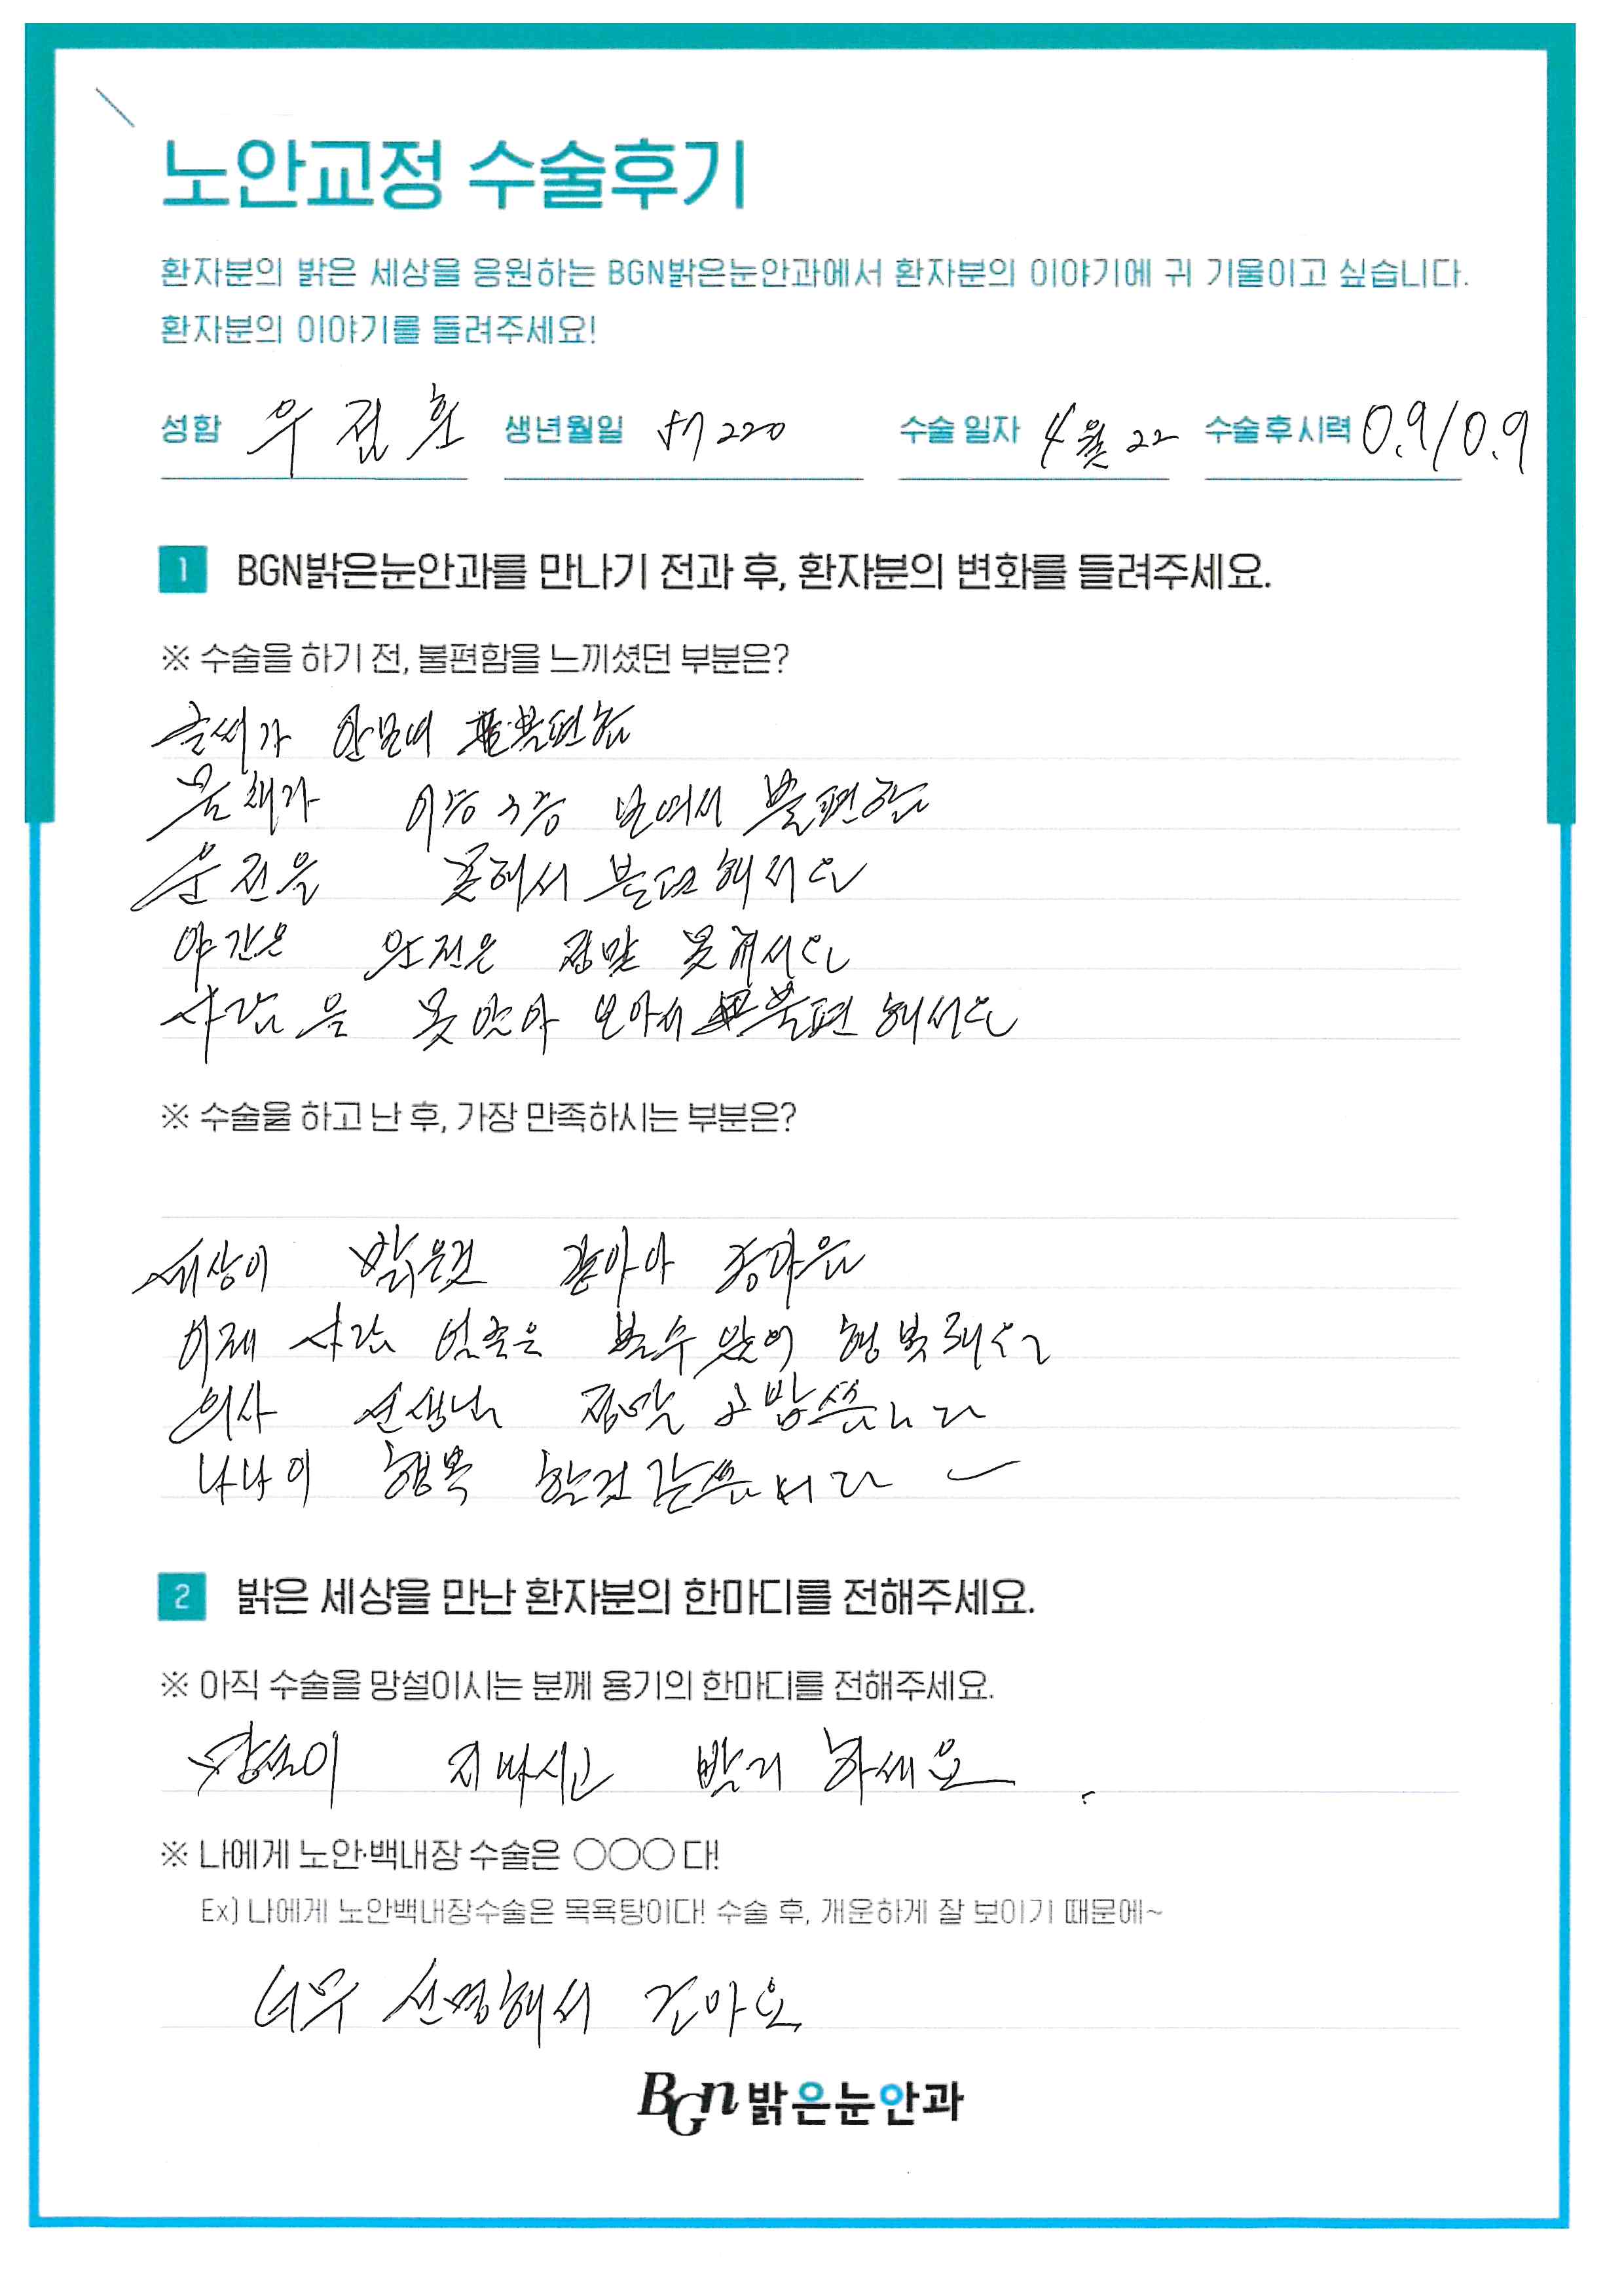 노안교정 수술후기
환자분의 밝은 세상을 응원하는 BGN밝은눈안과에서 환자분의 이야기에 귀 기울이고 싶습니다.
환자분의 이야기를 들려주세요!
성함 우점환 생년월일 571220 수술 일자 4월 22 수술 후 시력 0.9/0.9
1 BGN밝은눈안과를 만나기 전과 후, 환자분의 변화를 들려주세요.
※ 수술을 하기 전, 불편함을 느끼셨던 부분은?
글씨가 안보여 불편함
물체가 이중 3중 보여서 불편함
운전을 못해서 불편해서요
야간은 운전은 정말 못해서요
사람을 못 보아서 불편해서요
※ 수술을 하고 난 후, 가장 만족하시는 부분은?
세상이 밝은것 같아아
이제 사람 얼굴은 볼수 있어 행복해요
의사 선생님 정말 고맙씀니다
나나이 행복 할것 같씀니다
2 밝은 세상을 만난 환자분의 한마디를 전해주세요.
※ 아직 수술을 망설이시는 분께 용기의 한마디를 전해주세요.
망설이지마시고 빨리 하세요.
※ 나에게 노안·백내장 수술은 ○○○다!
Ex) 나에게 노안백내장수술은 목욕탕이다! 수술 후, 개운하게 잘 보이기 때문에~
너무 선명해서 고마요
BGN 밝은눈안과